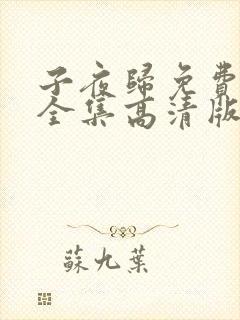 子夜歸免費
全集高清版
蘇九葉